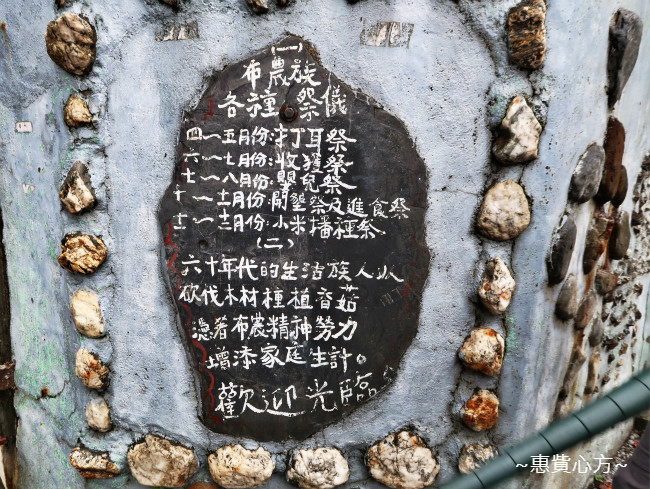 (一)
布農族
各種祭儀
四一五月份:打耳祭
六一七月份:收獲祭
七一八月份:嬰兒祭
十一十一月份:開墾祭及進食祭
十一一十二月份:小米播種祭
(二)
六十年代的生活族人以
砍伐木材種植香菇
憑著布農精神勞力
增添家庭生計。
歡迎光臨
~惠費心方~